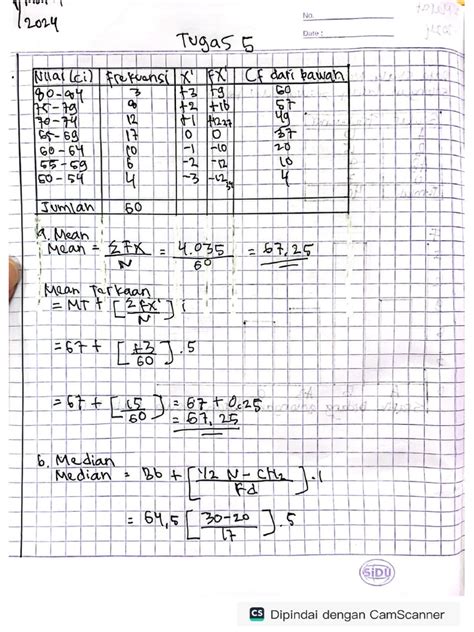 2024
No.
Date :
Tugas 5
Nilai (ci) Frekuensi X' FX' Cf dari bawah
80-84 3 +3 +9 60
75-79 8 +2 +16 57
70-74 12 +1 +12 49
65-69 17 0 0 37
60-64 10 -1 -10 20
55-59 6 -2 -12 10
50-54 4 -3 -12 4
Jumlah 60
a. Mean
Mean = ΣFX / N = 4.035 / 60 = 67,25
Mean Terkaan
= MT + [ΣFX' / N] i
= 67 + [+3 / 60] . 5
= 67 + [15 / 60] = 67 + 0,25
= 67,25
b. Median
Median = Bb + [1/2 N - CF2 / Fd] . i
= 64,5 [30-20 / 17] . 5
SiDU
CS Dipindai dengan CamScanner